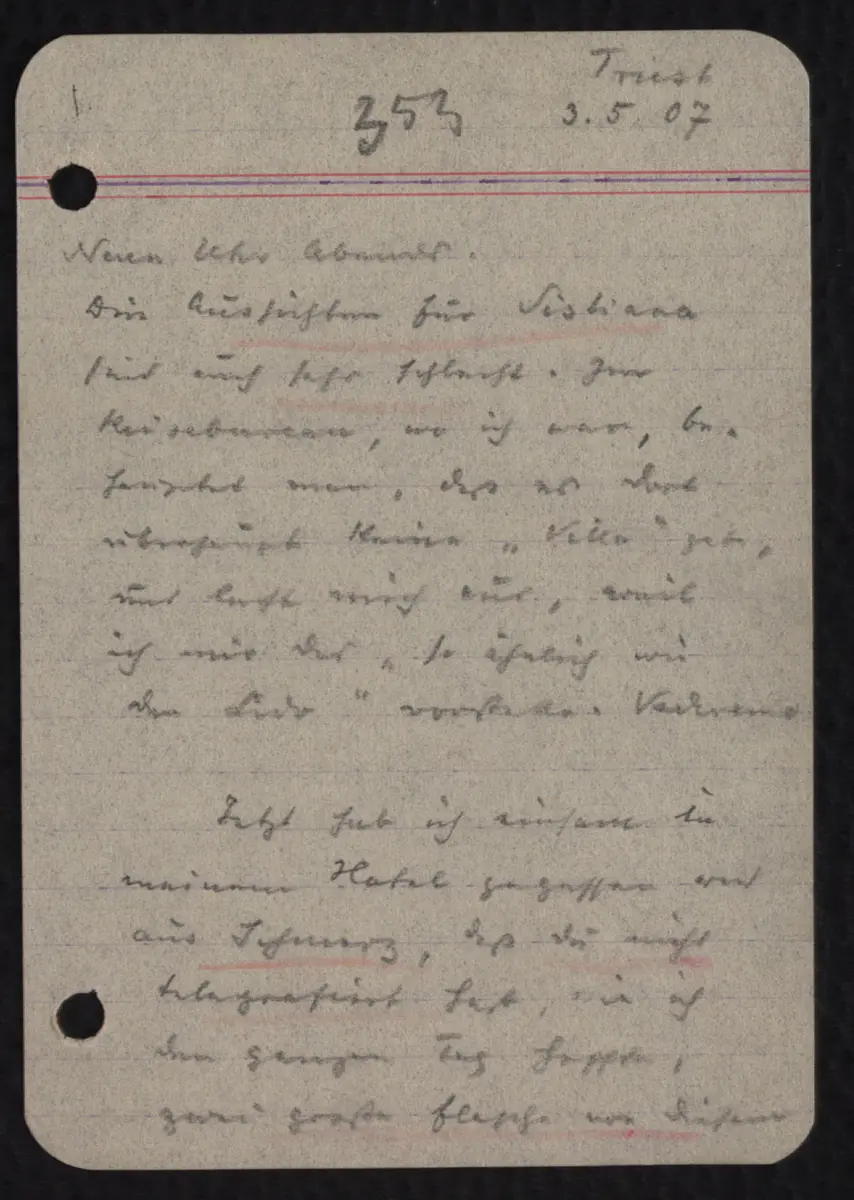 1
353
Triest
3.5.07
Neun Uhr Abends.
Die Aussichten für Sistiana
sind auch sehr schlecht. Im
Reisebureau, wo ich war, be-
hauptet man, daß es dort
überhaupt keine „Villa" gebe,
und lacht mich aus, weil
ich mir das „so ähnlich wie
den Lido" vorstelle.
Jetzt hab ich einsam in
meinem Hotel gegessen und
aus Schmerz, daß du nicht
telegrafiert hast, wie ich
den ganzen Tag hoffte,
zwei große Flasche von diesem